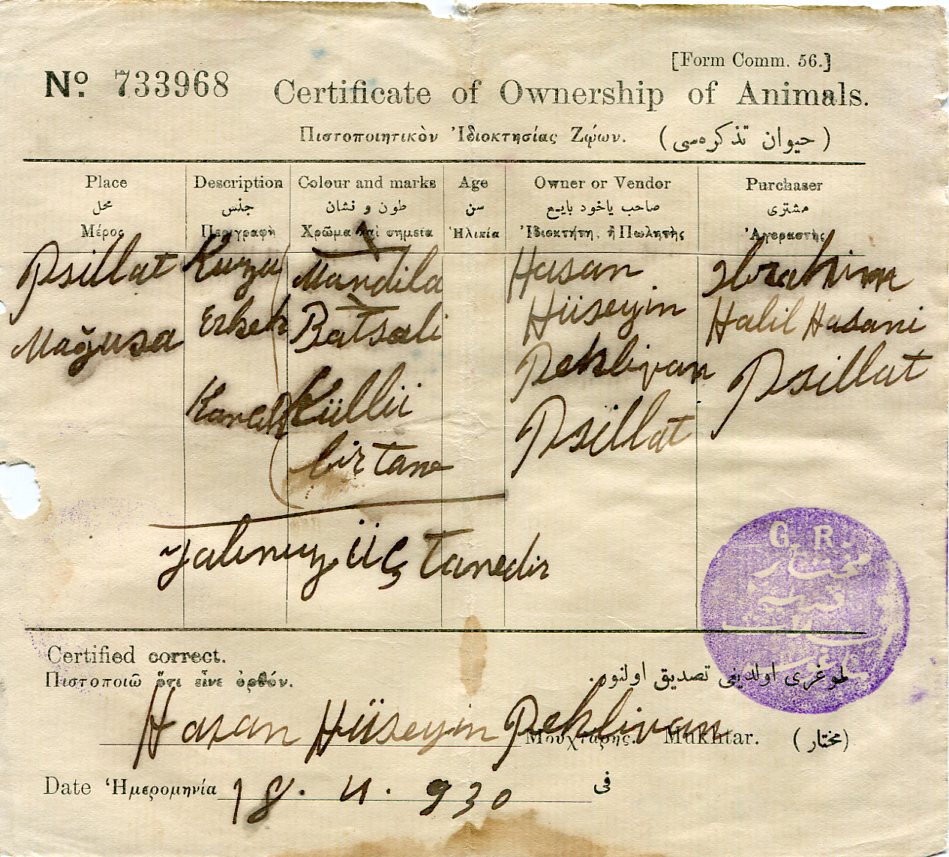 [Form Comm. 56.]
Nº. 733968 Certificate of Ownership of Animals.
Πιστοποιητικὸν Ἰδιοκτησίας Ζῴων. (حيوان تذكره‌سى)
Place Description Colour and marks Age Owner or Vendor Purchaser
محل جنس طون و نشان سن صاحب ياخود بايع مشترى
Μέρος Περιγραφὴ Χρῶμα καὶ σημεῖα Ἡλικία Ἰδιοκτήτη, ἢ Πωλητὴς Ἀγοραστὴς
Psillat Kuzu Mandila Hasan Ibrahim
Mağusa Erkek Batsali Hüseyin Halil Hasani
Pehlivan Psillat
Küllü Psillat
bir tane
Yalınız üç tanedir
G R
Certified correct.
Πιστοποιῶ ὅτι εἶνε ὀρθόν. طوغرى اولديغى تصديق اولنور.
Hasan Hüseyin Pehlivan Μουχτάρης. Mukhtar. (مختار)
Date Ἡμερομηνία 18. 11. 930 فى